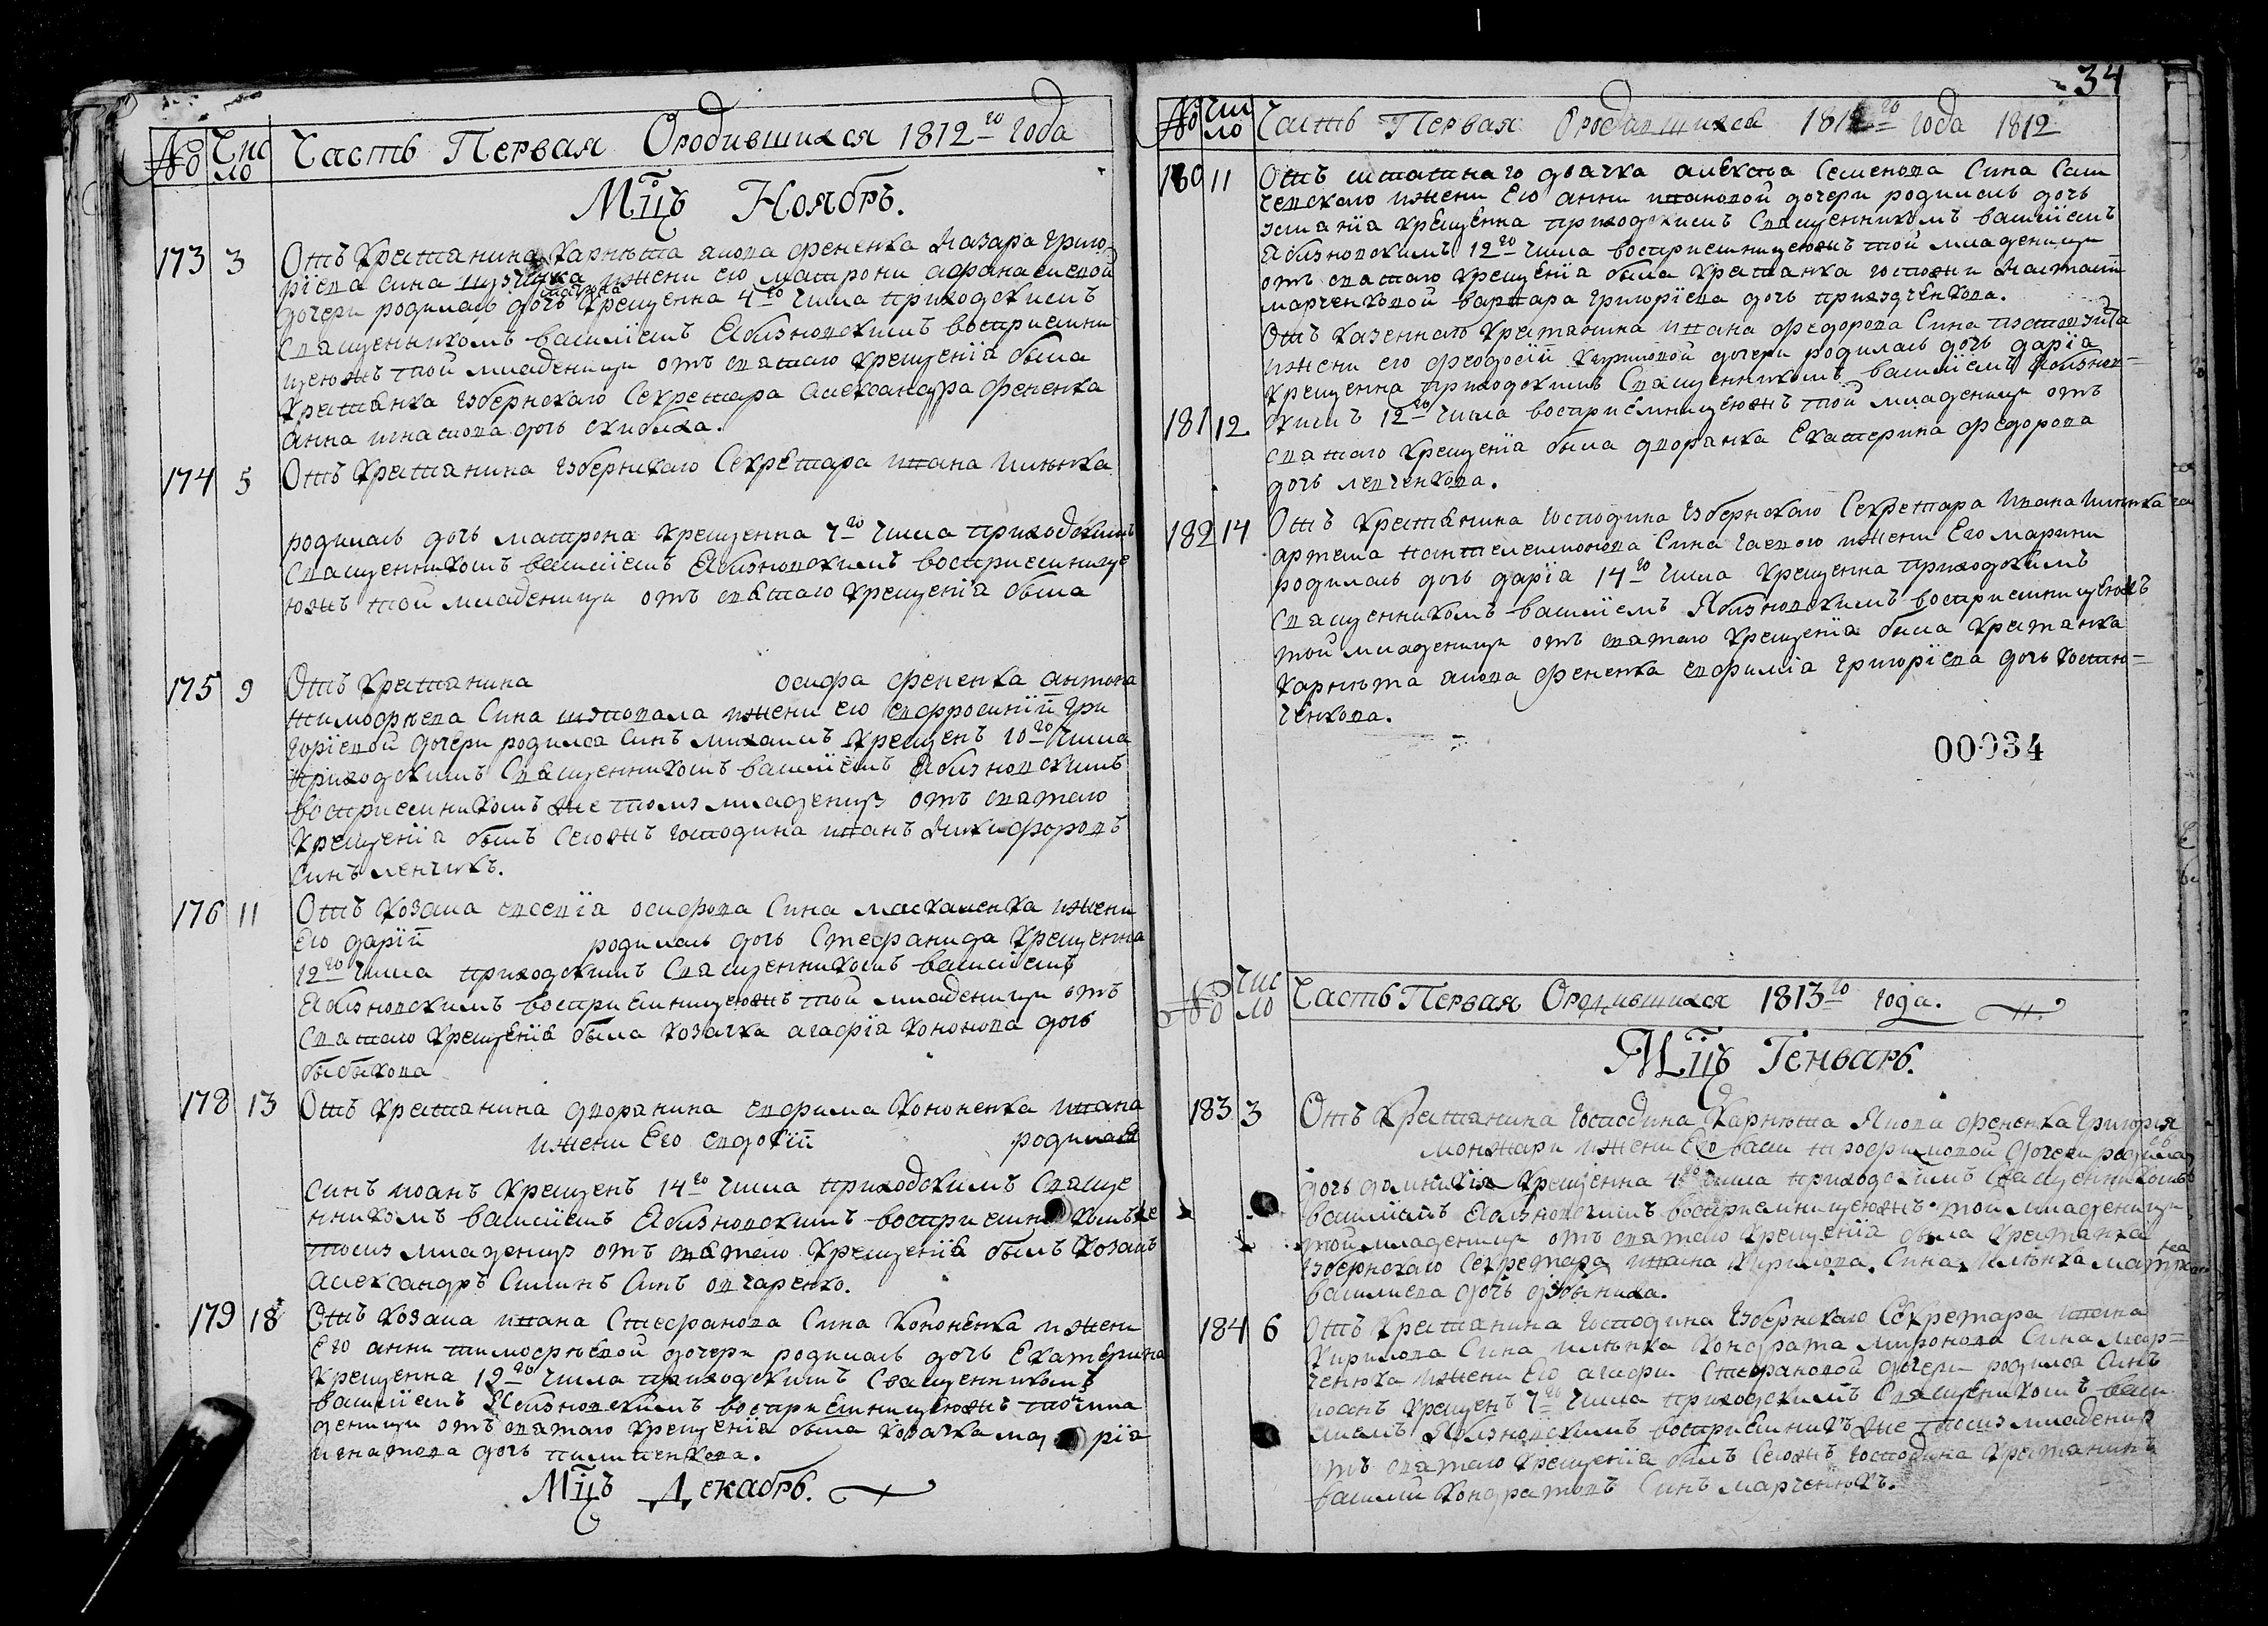 № Число Часть Первая Ородившихся 1812го года
Мцъ Ноябрь.
173 3 Отъ крестянина харнѣта якова фененка Назара григо-
рієва сина жени его матрони афанасиевой
дочери родилась дочь крещенна 4го числа приходскимъ
священникомъ василіемъ Яблзновскимъ восприемни
цеюжъ той младеници отъ святаго крещенія была
крестянка губернскаго секретара александра фененка
анна игнатова дочь скибика.
174 5 Отъ крестянина губернскаго секретара ивана илинка
родилась дочь матрона крещенна 7го числа приходскимъ
священникомъ василіемъ Яблзновскимъ восприемнице
южъ той младеници отъ святаго крещенія была
175 9 Отъ крестянина осифа фененка антона
тимофѣева сина шаповала ижени его евфросиніи гри
горіевой дочери родился синъ михаилъ крещенъ 10го числа
приходскимъ священникомъ василіемъ Яблзновскимъ
восприемникомъ же тому младенцу отъ святаго
крещенія былъ сегожъ господина иванъ никифоровъ
синъ ленчикъ.
176 11 Отъ козака евсевія осифова сина маскаленка ижени
его даріи родилась дочь стефанида крещенна
12го числа приходскимъ священникомъ василіемъ
Яблзновскимъ восприемницеюжъ той младеници отъ
святаго крещенія была козачка агафія кононова дочь
быбыкова
178 13 Отъ крестянина дворанина ефима кононенка ивана
ижени его евдокіи родился
синъ иоанъ крещенъ 14го числа приходскимъ свяще
нникомъ василіемъ Яблзновскимъ восприемникомъже
тому младенцу отъ святаго крещенія былъ козакъ
александръ симинъ синъ овчаренко.
179 18 Отъ козака ивана стефанова сина кононенка ижени
его анни тимофѣевой дочери родилась дочь екатерина
крещенна 19го числа приходскимъ священникомъ
василіемъ Яблзновскимъ восприемницеюжъ той мла
деници отъ святаго крещенія была козачка марія
игнатова дочь пилипенкова.
Мцъ Декабрь.
34
№ Число Часть Первая Ородившихся 1812го года 1812
180 11 Отъ штатнаго дячка алексѣа семенова сина сам
чевскаго ижени его анни ивановой дочери родилась дочь
крещенна приходскимъ священникомъ василіемъ
Яблзновскимъ 12го числа восприемницеюжъ той младеници
отъ святаго крещенія была крестянка госпожи настасіи
марченковой варвара григорієва дочь
Отъ казеннаго крестянина ивана федорова сина
ижени его феодосіи кириловой дочери родилась дочь дарія
крещенна приходскимъ священникомъ василіемъ Яблзнов-
181 12 скимъ 12го числа восприемницеюжъ той младеници отъ
святаго крещенія была дворанка екатерина федорова
дочь левченкова.
182 14 Отъ крестянина господина губернскаго секретара ивана илинка
артема пантелеимонова сина ижени его марини
родилась дочь дарія 14го числа крещенна приходскимъ
священникомъ василіемъ Яблзновскимъ восприемницеюжъ
той младеници отъ святаго крещенія была крестянка
харнѣта якова фененка евфимія григорієва дочь костю-
ченкова.
00034
№ Число Часть Первая Ородившихся 1813го года.
Мцъ Генварь.
183 3 Отъ крестянина господина харнѣта Якова фененка григорія
монжари ижени его васи трофимовой дочери родилась
дочь домникія крещенна 4го числа приходскимъ священникомъ
василіемъ Яблзновскимъ восприемницеюжъ той младеници
той младеници отъ святаго крещенія была крестянка
губернскаго секретара ивана кирилова сина илинка
василиева дочь
184 6 Отъ крестянина господина губернскаго секретара ивана
кирилова сина илинка кондрата миронова сина мар-
ченюка ижени его агафи стефановой дочери родился синъ
иоанъ крещенъ 7го числа приходскимъ священикомъ васи
лиемъ Яблзновскимъ восприемникъ же тому младенцу
отъ святаго крещенія былъ сегожъ господина крестянинъ
василий кондратовъ синъ марченюкъ.